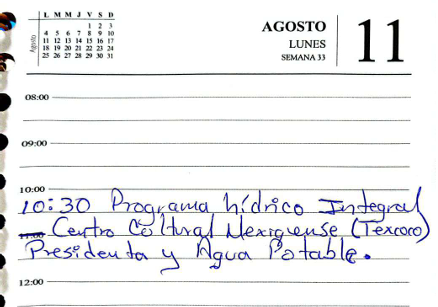 L M M J V S D
1 2 3
4 5 6 7 8 9 10
11 12 13 14 15 16 17
18 19 20 21 22 23 24
25 26 27 28 29 30 31
Agosto
AGOSTO
LUNES
SEMANA 33
11
08:00
09:00
10:00
10:30 Programa hídrico Integral
Centro Cultural Mexiquense (Texcoco)
Presidenta y Agua Potable.
12:00